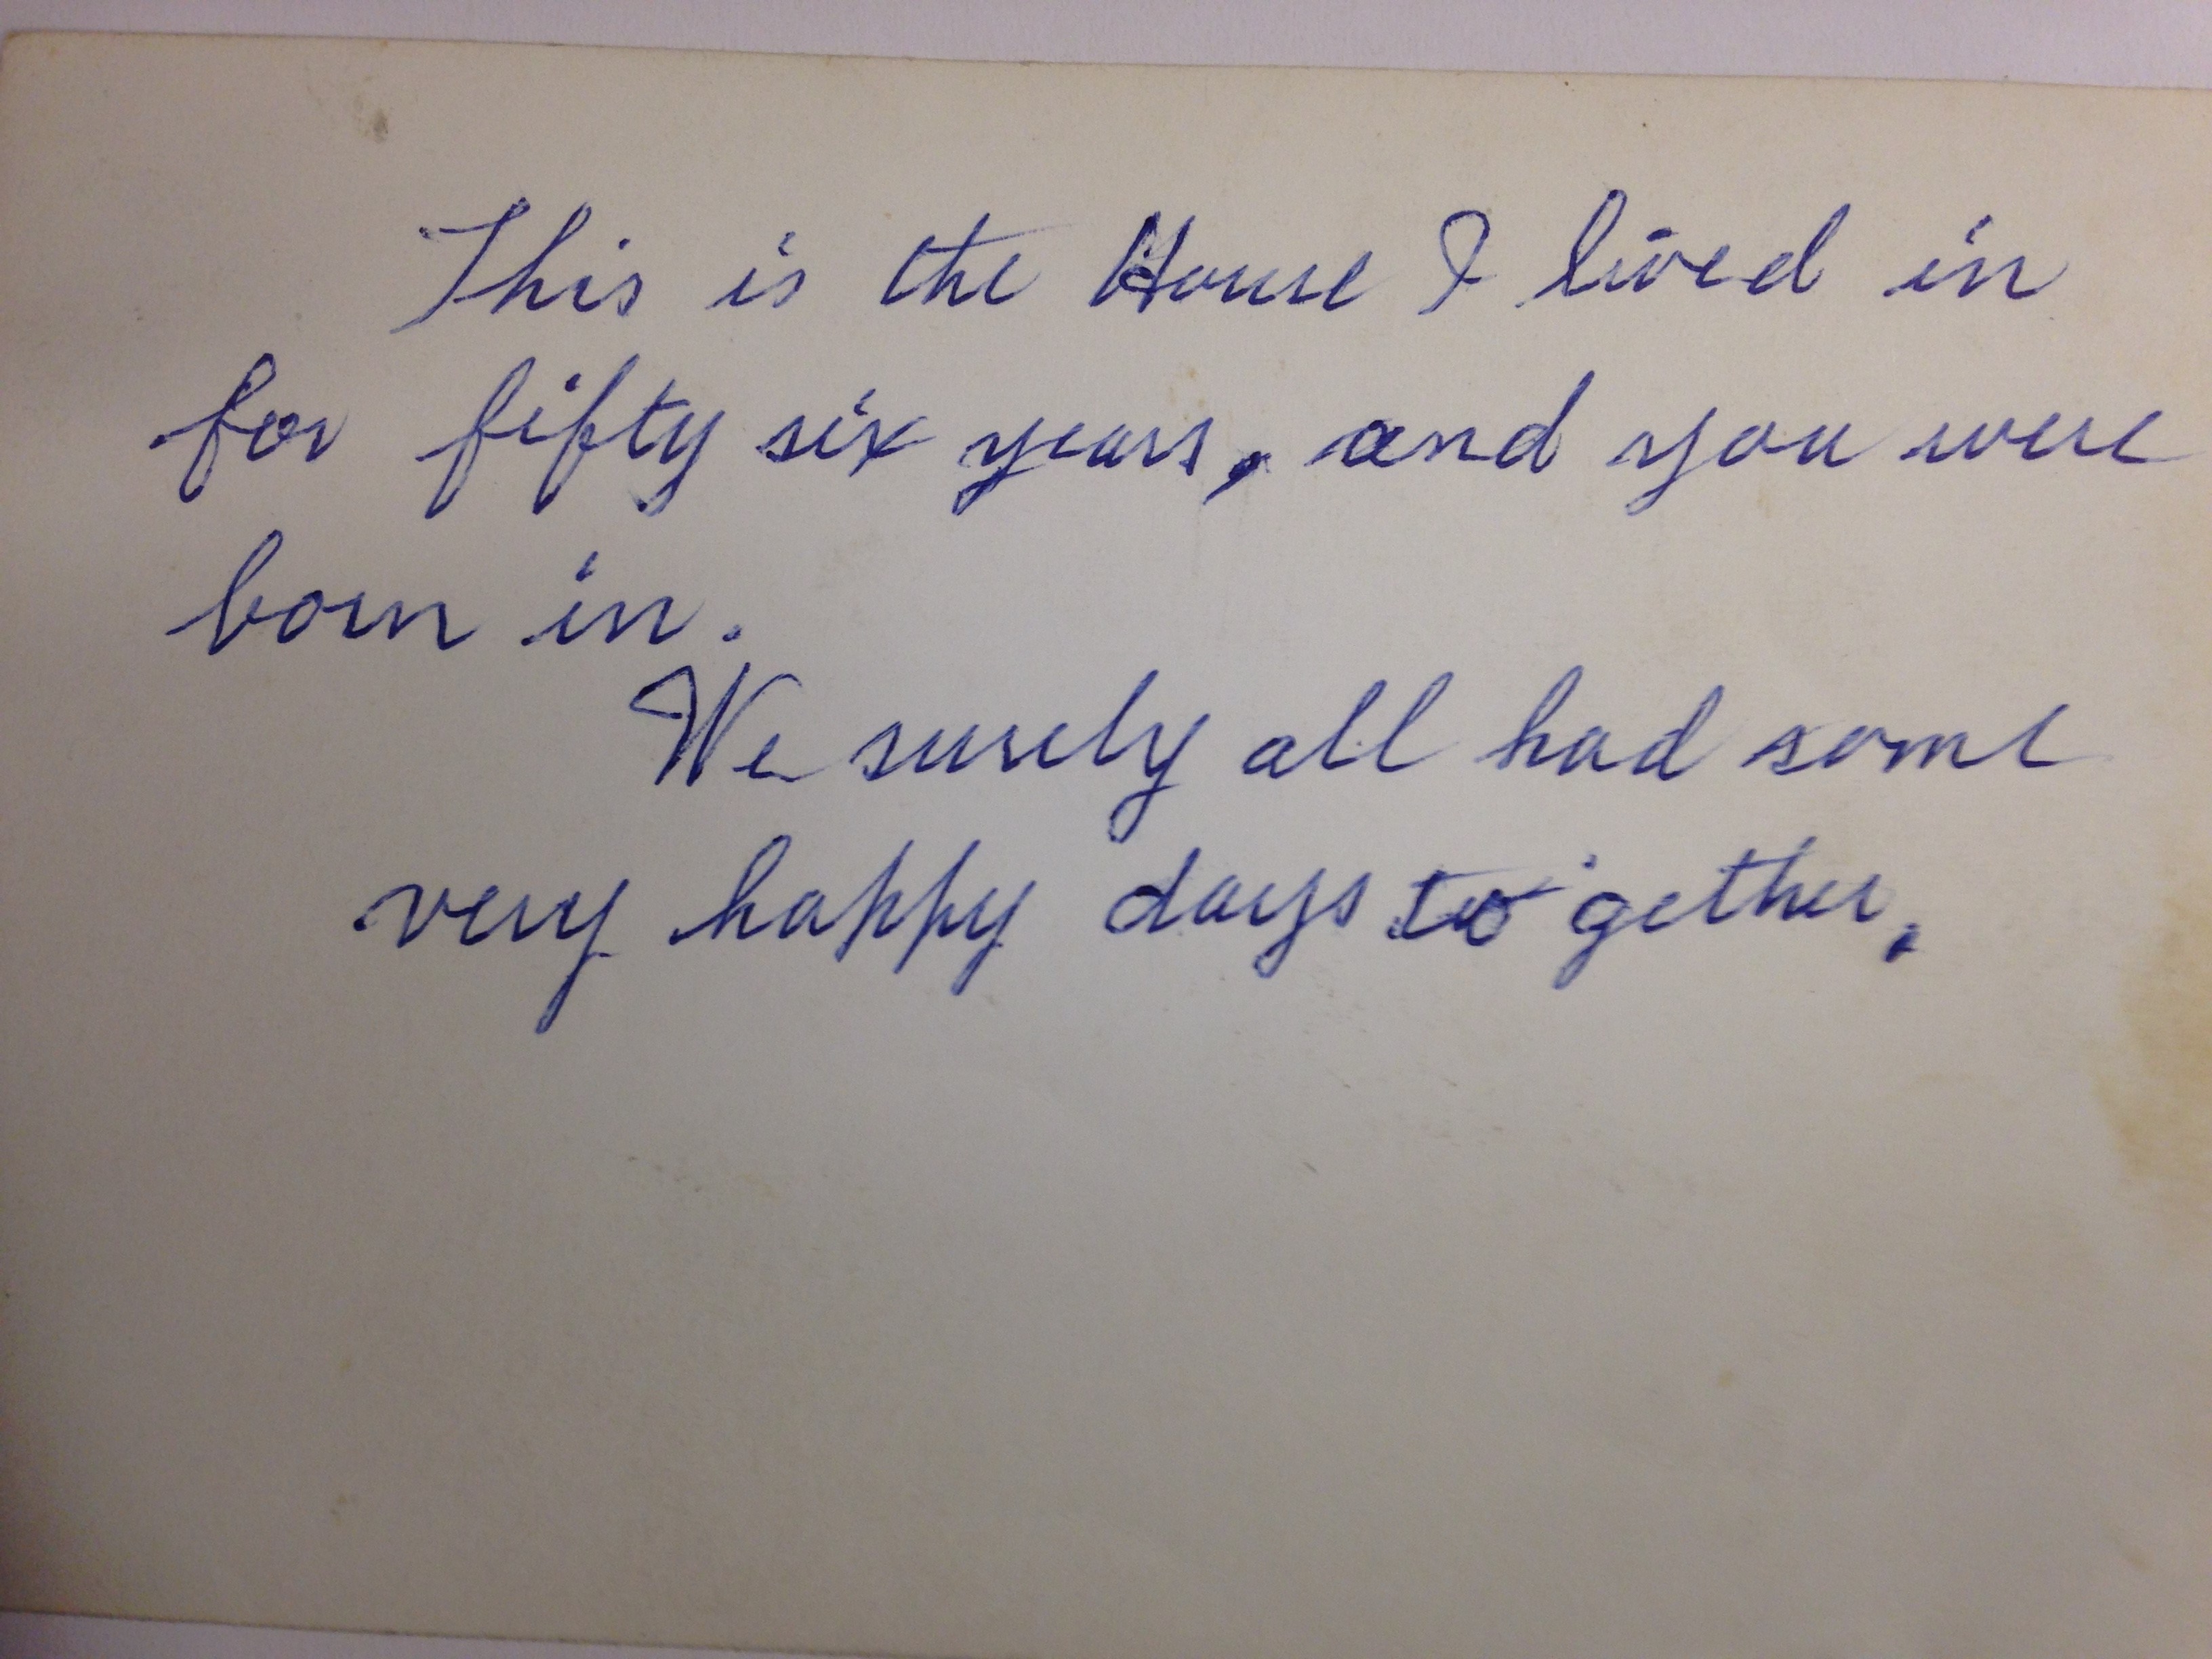 This is the House I lived in
for fifty six years, and you were
born in.
We surely all had some
very happy days to gether.